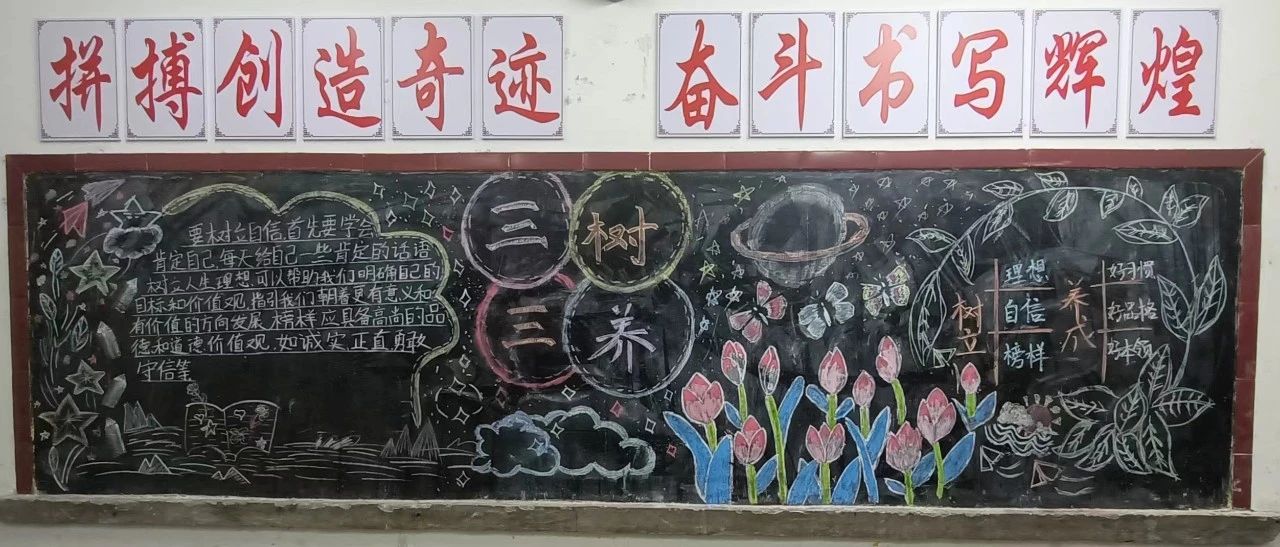 拼搏创造奇迹
奋斗书写辉煌
要树立自信首先要学会
肯定自己,每天给自己一些肯定的话语
树立人生理想,可以帮助我们明确自己的
目标和价值观,指引我们朝着更有意义和
有价值的方向发展,榜样应具备高尚的品
德和道德价值观,如诚实正直勇敢
守信等
三树
三养
树立
理想
自信
榜样
养成
好习惯
好品格
好本领